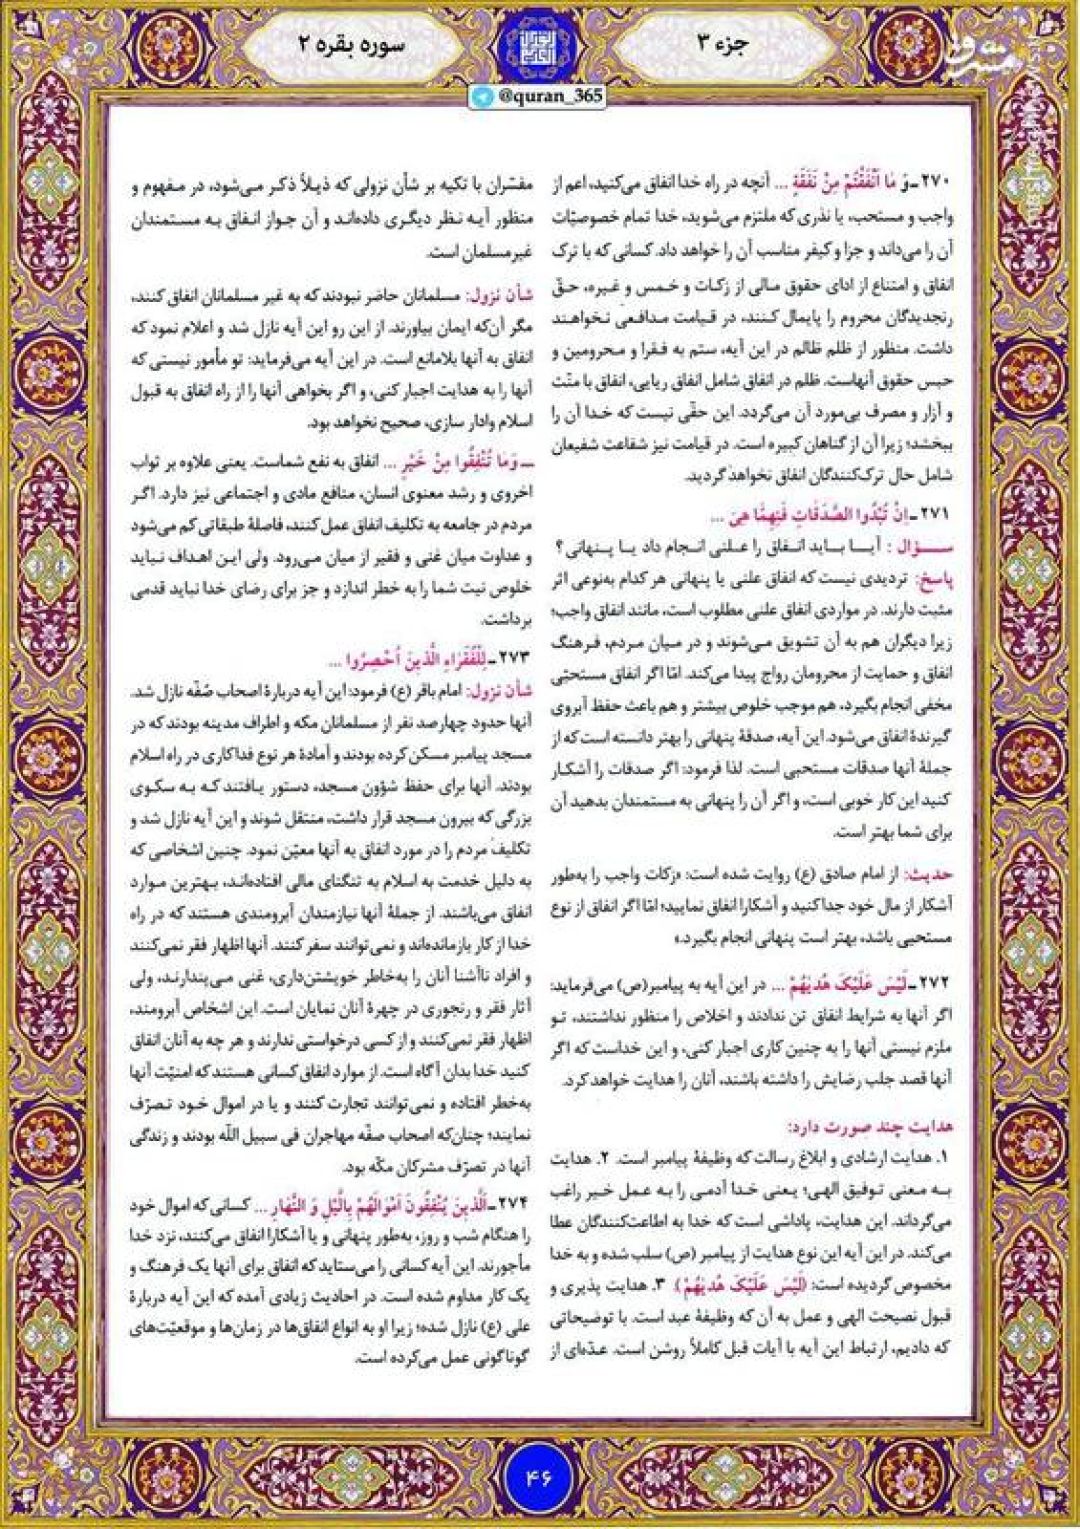 جزء ۳
سوره بقره ۲
@quran_365
مشرق
۲۷۰ـ وَ مَا أَنْفَقْتُمْ مِنْ نَفَقَةٍ ... آنچه در راه خدا انفاق می‌کنید، اعم از
واجب و مستحب، یا نذری که ملتزم می‌شوید، خدا تمام خصوصیّات
آن را می‌داند و جزا و کیفر مناسب آن را خواهد داد. کسانی که با ترک
انفاق و امتناع از ادای حقوق مالی از زکات و خمس و غیره، حقّ
رنجدیدگان محروم را پایمال کنند، در قیامت مدافعی نخواهند
داشت. منظور از ظلم ظالم در این آیه، ستم به فقرا و محرومین و
حبس حقوق آنهاست. ظلم در انفاق شامل انفاق ریایی، انفاق با منّت
و آزار و مصرف بی‌مورد آن می‌گردد. این حقّی نیست که خدا آن را
ببخشد؛ زیرا آن از گناهان کبیره است. در قیامت نیز شفاعت شفیعان
شامل حال ترک‌کنندگان انفاق نخواهد گردید.
۲۷۱ـ إِنْ تُبْدُوا الصَّدَقَاتِ فَنِعِمَّا هِیَ ...
سؤال : آیا باید انفاق را علنی انجام داد یا پنهانی؟
پاسخ: تردیدی نیست که انفاق علنی یا پنهانی هر کدام به‌نوعی اثر
مثبت دارند. در مواردی انفاق علنی مطلوب است، مانند انفاق واجب؛
زیرا دیگران هم به آن تشویق می‌شوند و در میان مردم، فرهنگ
انفاق و حمایت از محرومان رواج پیدا می‌کند. امّا اگر انفاق مستحبّی
مخفی انجام بگیرد، هم موجب خلوص بیشتر و هم باعث حفظ آبروی
گیرندهٔ انفاق می‌شود. این آیه، صدقهٔ پنهانی را بهتر دانسته است که از
جملهٔ آنها صدقات مستحبی است. لذا فرمود: اگر صدقات را آشکار
کنید این کار خوبی است، و اگر آن را پنهانی به مستمندان بدهید آن
برای شما بهتر است.
حدیث: از امام صادق (ع) روایت شده است: «زکات واجب را به‌طور
آشکار از مال خود جدا کنید و آشکارا انفاق نمایید؛ امّا اگر انفاق از نوع
مستحبی باشد، بهتر است پنهانی انجام بگیرد.»
۲۷۲ـ لَیْسَ عَلَیْکَ هُدَیٰهُمْ ... در این آیه به پیامبر(ص) می‌فرماید:
اگر آنها به شرایط انفاق تن ندادند و اخلاص را منظور نداشتند، تو
ملزم نیستی آنها را به چنین کاری اجبار کنی، و این خداست که اگر
آنها قصد جلب رضایش را داشته باشند، آنان را هدایت خواهد کرد.
هدایت چند صورت دارد:
۱. هدایت ارشادی و ابلاغ رسالت که وظیفهٔ پیامبر است. ۲. هدایت
به معنی توفیق الهی؛ یعنی خدا آدمی را به عمل خیر راغب
می‌گرداند. این هدایت، پاداشی است که خدا به اطاعت‌کنندگان عطا
می‌کند. در این آیه این نوع هدایت از پیامبر (ص) سلب شده و به خدا
مخصوص گردیده است: (لَیْسَ عَلَیْکَ هُدَیٰهُمْ). ۳. هدایت پذیری و
قبول نصیحت الهی و عمل به آن که وظیفهٔ عبد است. با توضیحاتی
که دادیم، ارتباط این آیه با آیات قبل کاملاً روشن است. عدّه‌ای از
مفسّران با تکیه بر شأن نزولی که ذیلاً ذکر می‌شود، در مفهوم و
منظور آیه نظر دیگری داده‌اند و آن جواز انفاق به مستمندان
غیرمسلمان است.
شأن نزول: مسلمانان حاضر نبودند که به غیر مسلمانان انفاق کنند،
مگر آن‌که ایمان بیاورند. از این رو این آیه نازل شد و اعلام نمود که
انفاق به آنها بلامانع است. در این آیه می‌فرماید: تو مأمور نیستی که
آنها را به هدایت اجبار کنی، و اگر بخواهی آنها را از راه انفاق به قبول
اسلام وادار سازی، صحیح نخواهد بود.
ـ وَمَا تُنْفِقُوا مِنْ خَیْرٍ ... انفاق به نفع شماست. یعنی علاوه بر ثواب
اخروی و رشد معنوی انسان، منافع مادی و اجتماعی نیز دارد. اگر
مردم در جامعه به تکلیف انفاق عمل کنند، فاصلهٔ طبقاتی کم می‌شود
و عداوت میان غنی و فقیر از میان می‌رود. ولی این اهداف نباید
خلوص نیت شما را به خطر اندازد و جز برای رضای خدا نباید قدمی
برداشت.
۲۷۳ـ لِلْفُقَرَاءِ الَّذِینَ أُحْصِرُوا ...
شأن نزول: امام باقر (ع) فرمود: این آیه دربارهٔ اصحاب صُفّه نازل شد.
آنها حدود چهارصد نفر از مسلمانان مکه و اطراف مدینه بودند که در
مسجد پیامبر مسکن کرده بودند و آمادهٔ هر نوع فداکاری در راه اسلام
بودند. آنها برای حفظ شؤون مسجد، دستور یافتند که به سکوی
بزرگی که بیرون مسجد قرار داشت، منتقل شوند و این آیه نازل شد و
تکلیف مردم را در مورد انفاق به آنها معیّن نمود. چنین اشخاصی که
به دلیل خدمت به اسلام به تنگنای مالی افتاده‌اند، بهترین موارد
انفاق می‌باشند. از جملهٔ آنها نیازمندان آبرومندی هستند که در راه
خدا از کار بازمانده‌اند و نمی‌توانند سفر کنند. آنها اظهار فقر نمی‌کنند
و افراد ناآشنا آنان را به‌خاطر خویشتن‌داری، غنی می‌پندارند، ولی
آثار فقر و رنجوری در چهرهٔ آنان نمایان است. این اشخاص آبرومند،
اظهار فقر نمی‌کنند و از کسی درخواستی ندارند و هر چه به آنان انفاق
کنید خدا بدان آگاه است. از موارد انفاق کسانی هستند که امنیّت آنها
به‌خطر افتاده و نمی‌توانند تجارت کنند و یا در اموال خود تصرّف
نمایند؛ چنان‌که اصحاب صفّه مهاجران فی سبیل اللّه بودند و زندگی
آنها در تصرّف مشرکان مکّه بود.
۲۷۴ـ اَلَّذِینَ یُنْفِقُونَ أَمْوَالَهُمْ بِالَّیْلِ وَ النَّهَارِ ... کسانی که اموال خود
را هنگام شب و روز، به‌طور پنهانی و یا آشکارا انفاق می‌کنند، نزد خدا
مأجورند. این آیه کسانی را می‌ستاید که انفاق برای آنها یک فرهنگ و
یک کار مداوم شده است. در احادیث زیادی آمده که این آیه دربارهٔ
علی (ع) نازل شده؛ زیرا او به انواع انفاق‌ها در زمان‌ها و موقعیّت‌های
گوناگونی عمل می‌کرده است.
۴۶